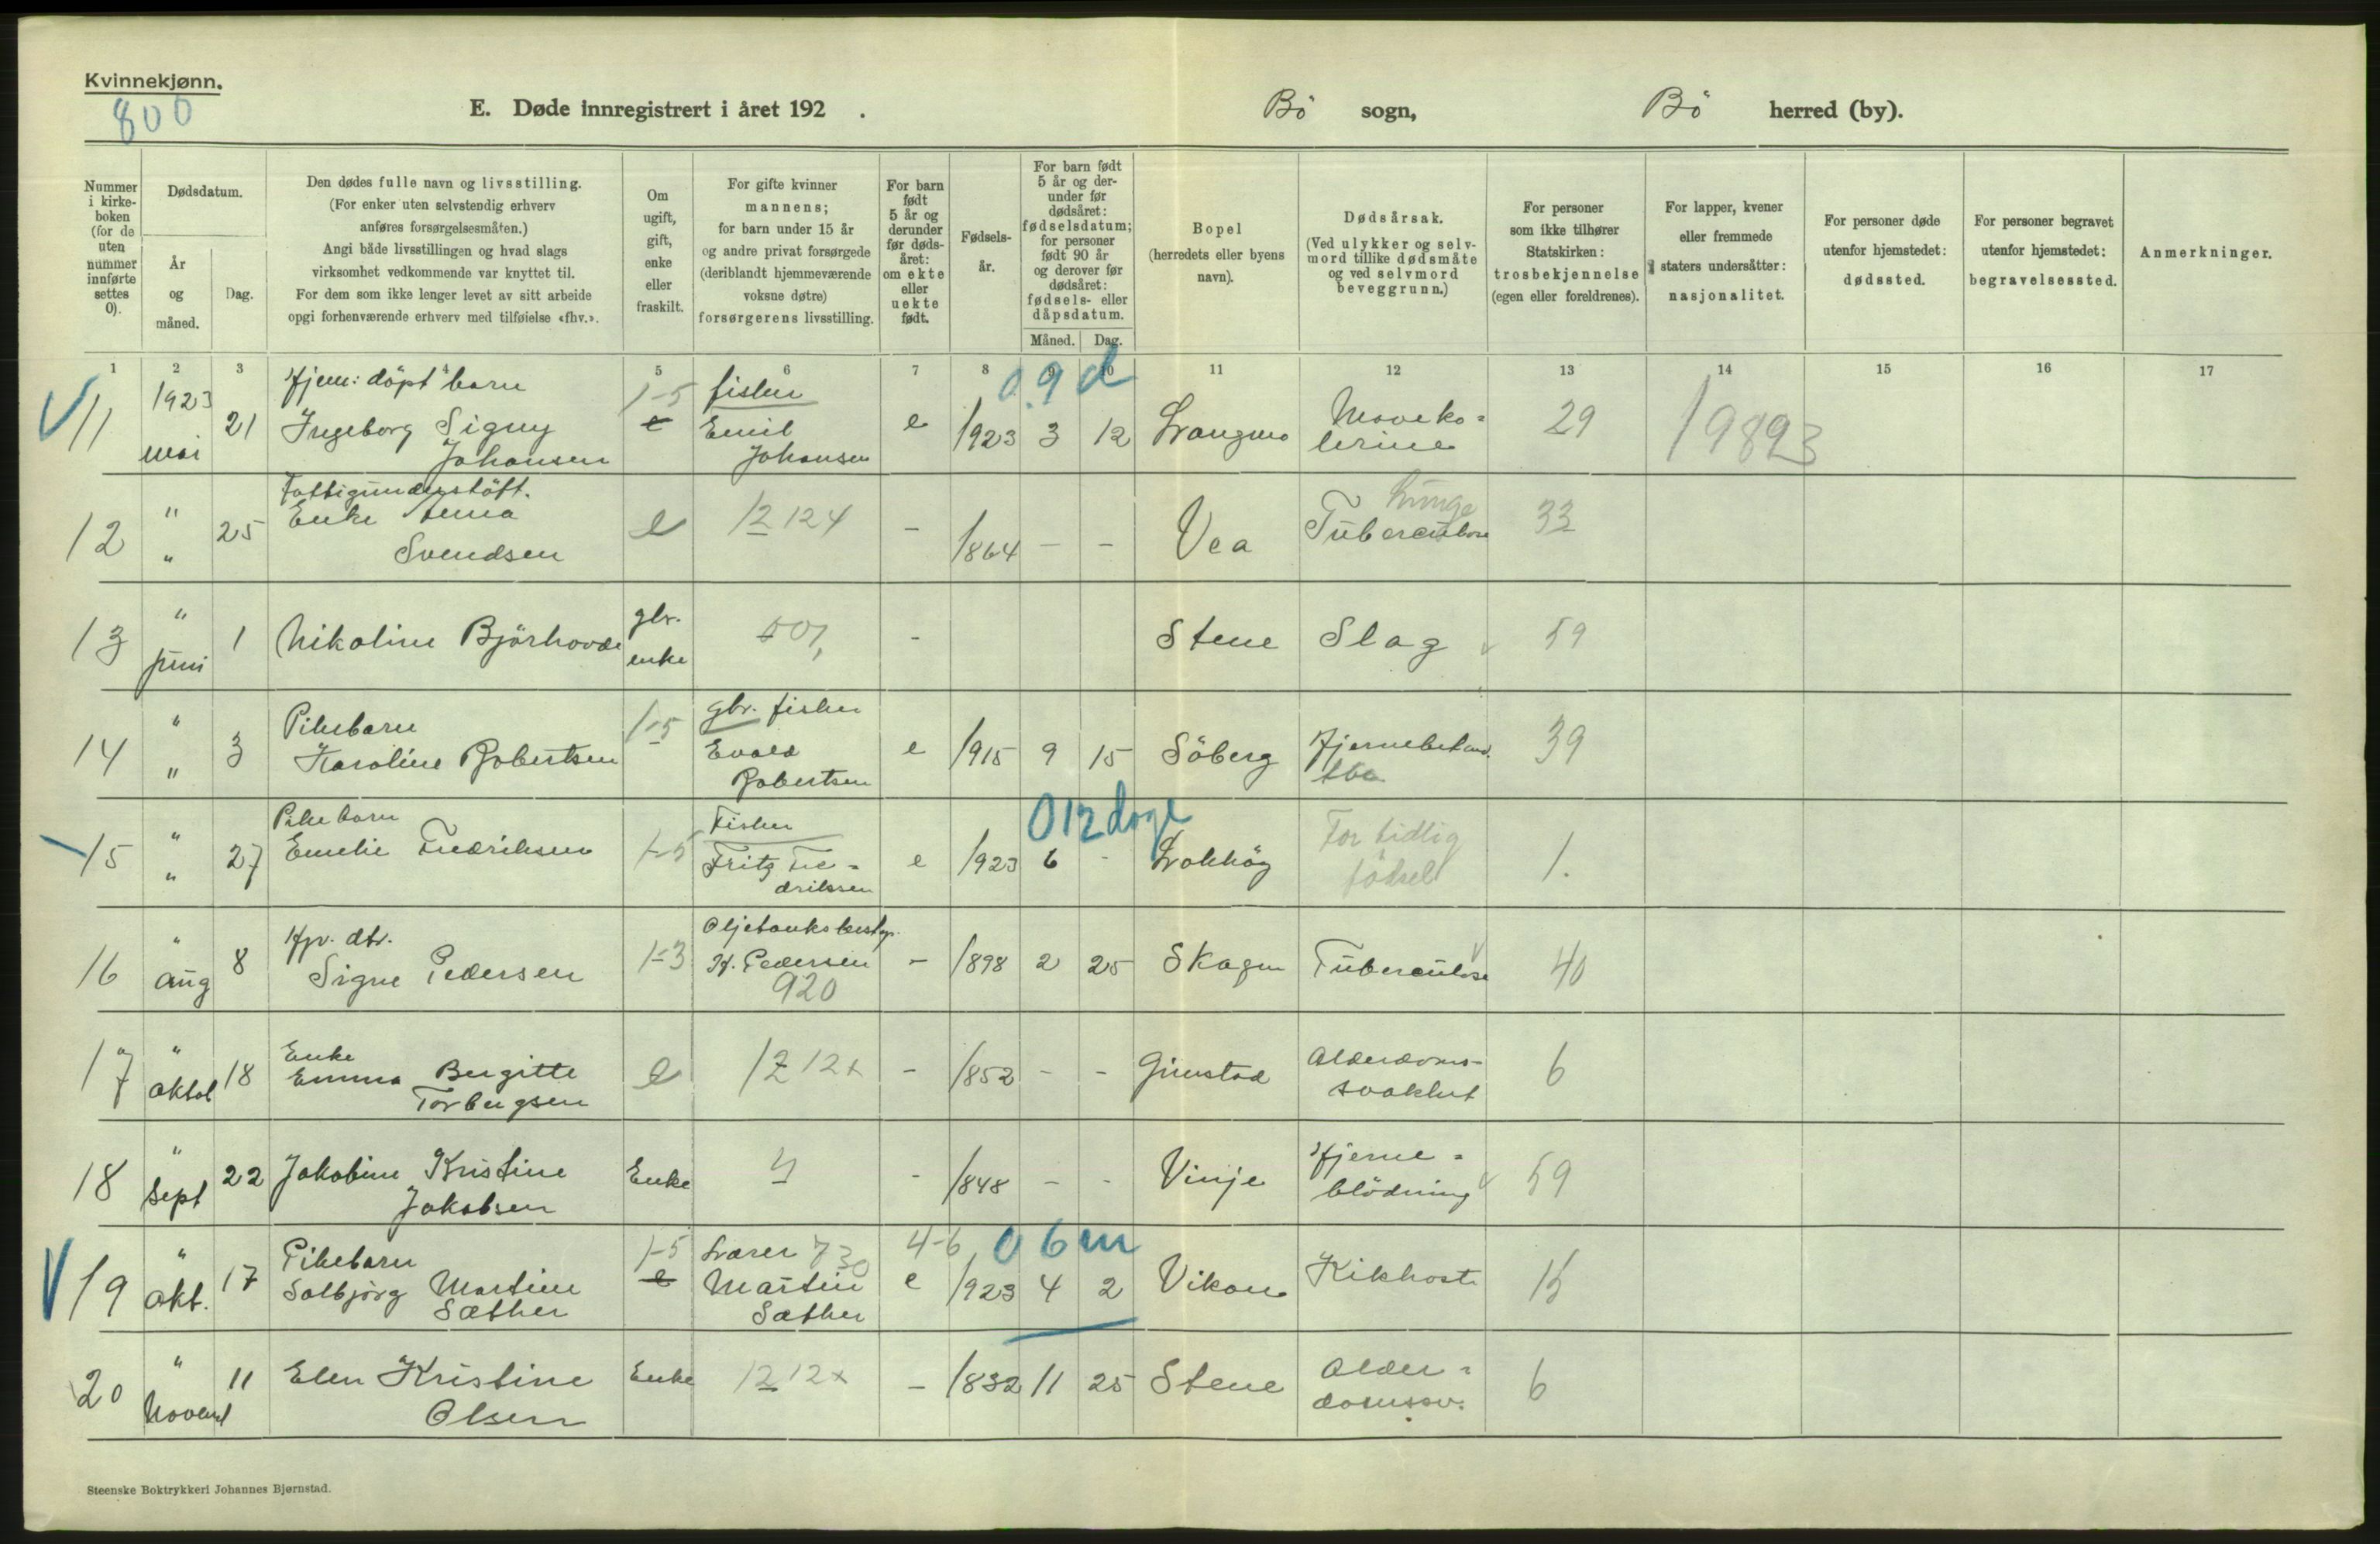 Kvinnekjønn.
800
E. Døde innregistrert i året 192 .
Bö sogn,
Bö herred (by).
Nummer i kirke-boken (for de uten nummer innførte settes 0).
Dødsdatum.
År og måned.
Dag.
Den dødes fulle navn og livsstilling.
(For enker uten selvstendig erhverv
anføres forsørgelsesmåten.)
Angi både livsstillingen og hvad slags
virksomhet vedkommende var knyttet til.
For dem som ikke lenger levet av sitt arbeide
opgi forhenværende erhverv med tilføielse «fhv.».
Om ugift, gift, enke eller fraskilt.
For gifte kvinner
mannens;
for barn under 15 år
og andre privat forsørgede
(deriblandt hjemmeværende
voksne døtre)
forsørgerens livsstilling.
For barn født 5 år og derunder før døds-året: om ekte eller uekte født.
Fødsels-år.
For barn født 5 år og der-under før dødsåret: fødselsdatum; for personer født 90 år og derover før dødsåret: fødsels- eller dåpsdatum.
Måned. Dag.
Bopel
(herredets eller byens
navn).
Dødsårsak.
(Ved ulykker og selv-
mord tillike dødsmåte
og ved selvmord
beveggrunn.)
For personer
som ikke tilhører
Statskirken:
trosbekjennelse
(egen eller foreldrenes).
For lapper, kvener
eller fremmede
staters undersåtter:
nasjonalitet.
For personer døde
utenfor hjemstedet:
dødssted.
For personer begravet
utenfor hjemstedet:
begravelsessted.
Anmerkninger.
1 2 3 4 5 6 7 8 9 10 11 12 13 14 15 16 17
0 9 d
Hjem: döpt barn
11 1923 mai 21 Ingeborg Signy Johansen 1-5 e fisker Emil Johansen e 1923 3 12 29 19823
12 " " 25 Fattigunderstött. Enke Anna Svendsen e 12 124 - 1864 - - Vea Tuberculose lunge 33
13 " juni 1 Nikoline Björhovde gbr. enke - Stene Slag 59
14 " " 3 Pikebarn Karoline Robertsen 1-5 gbr. fisker Evald Robertsen e 1915 9 15 Söberg tbc 39
0 12 dage
15 " " 27 Pikebarn Emelie Fredriksen 1-5 Fisker Fritz Fre= driksen e 1923 6 - For tidlig födsel 1.
16 " aug 8 Hjv. dtr. Signe Pedersen 1-3 H. Pedersen 920 - 1898 2 25 Skagen Tuberculose 40
17 " oktob 18 Enke Emma Bergitte Torbergsen e 12 12x - 1852 - - Grimstad Alderdoms- svakhet 6
18 " sept 22 Jakobine Kristine Jakobsen Enke 4 - 1848 - - Vinje Hjerne= blödning 59
0 6 m
19 " okt. 17 Pikebarn Solbjörg Martine Sæther 1-5 e Lærer 730 Martin Sæther 4-6 e 1923 4 2 Vikan Kikhoste 15
20 " Novemb 11 Elen Kristine Olsen Enke 12 12x - 1832 11 25 Stene Alder= domssv. 6
Steenske Boktrykkeri Johannes Bjørnstad.